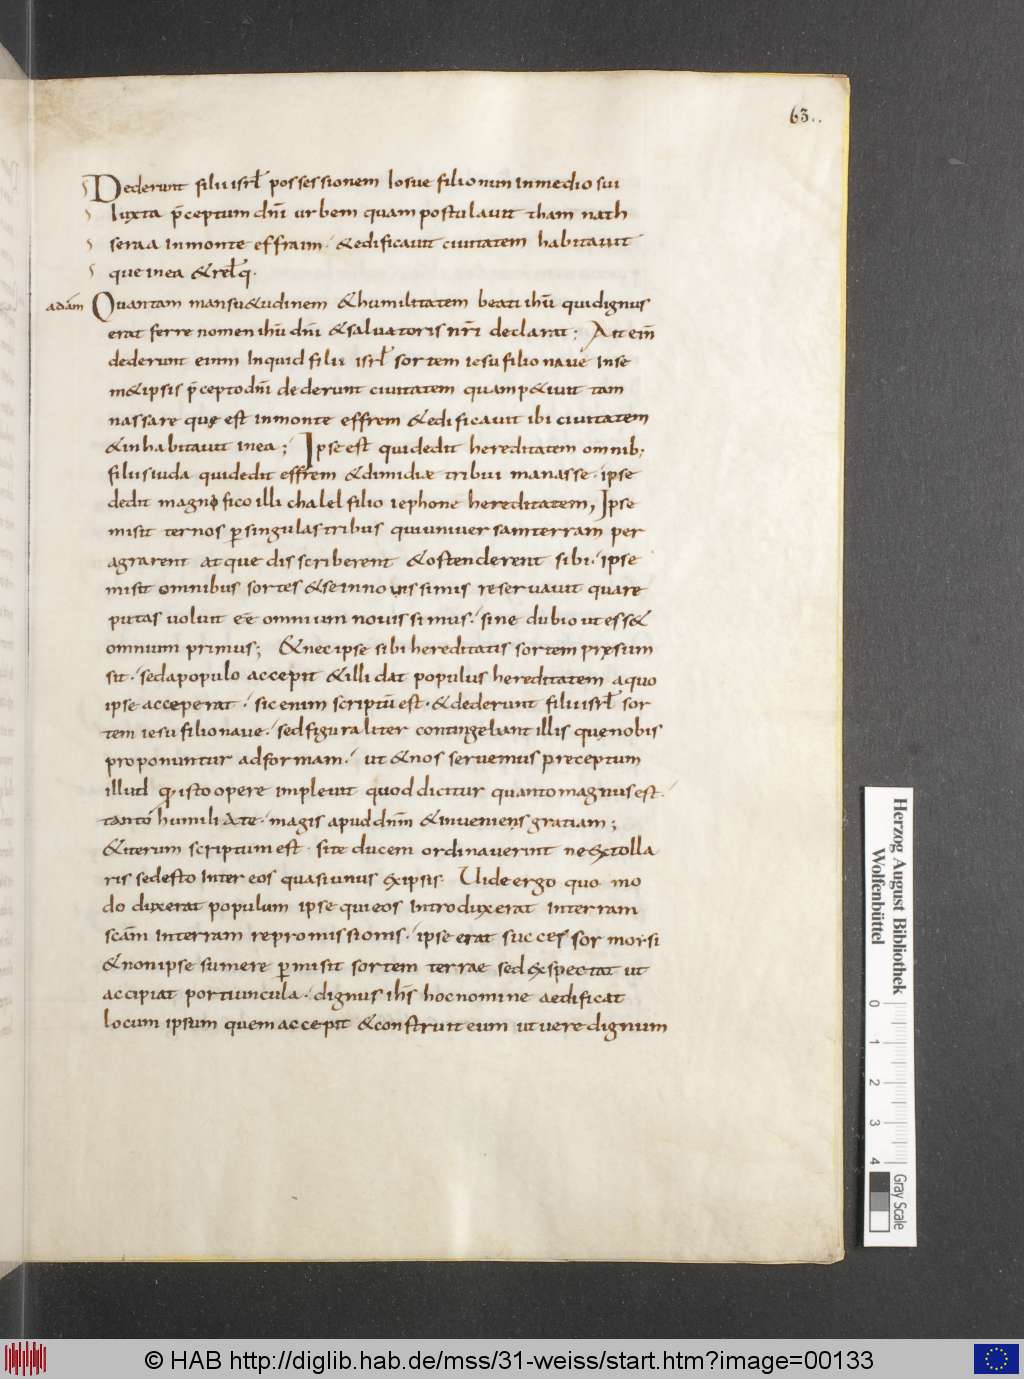 63..
Dederunt filii isrl̅ possessionem Iosue filio nun in medio sui
Iuxta p̅ceptum dn̅i urbem quam postulavit tham nath
seraa in monte effraim · &edificavit civitatem habitavit
que in ea & rel̅q ·
adam Quantam mansu&udinem & humilitatem beati ihu̅ qui dignus
erat ferre nomen ihu̅ dn̅i & salvatoris nr̅i declarat : Attein̅
dederunt enim Inquid filii isrl̅ sortem iesu filio nave Inse
m&ipsis p̅cepto dn̅i dederunt civitatem quam p&ivit tam
nassare quę est in monte effrem & edificavit ibi civitatem
& inhabitavit in ea ; Ipse est qui dedit hereditatem omnib;
filiis iuda qui dedit effrem & dimidiæ tribui manasse · ipse
dedit magnifico illi chalel filio iephone hereditatem, Ipse
misit ternos p̱ singulas tribus qui universam terram per
agrarent atque disscriberent & ostenderent sibi · ipse
misit omnibus sortes & se in novissimis reservavit quare
putas voluit ee̅ omnium novissimus · sine dubio ut ess&
omnium primus ; & nec ipse sibi hereditatis sortem pręsum
sit · sed a populo accepit & illi dat populus hereditatem a quo
ipse acceperat · sic enim scriptu̅ est · & dederunt filii isrl̅ sor
tem iesu filio nave · sed figuraliter contingebant illis quę nobis
proponuntur ad formam · ut & nos servemus preceptum
illud qͥ isto opere implevit quod dicitur quanto magnus est ·
tanto humiliate · magis apud dnm̅ & inveniens gratiam ;
& iterum scriptum est · si te ducem ordinaverint ne extolla
ris sed esto Inter eos quasi unus ex ipsis · Uide ergo quo mo
do duxerat populum ipse qui eos Introduxerat Interram
scam̅ Interram repromissionis · ipse erat successor moisi
& non ipse sumere p̱misit sortem terrae sed exspectat ut
accipiat portiuncula · dignus ihs̅ hoc nomine aedificat
locum ipsum quem accepit & construit eum ut vere dignum
Herzog August Bibliothek
Wolfenbüttel
0 1 2 3 4
Gray Scale
© HAB http://diglib.hab.de/mss/31-weiss/start.htm?image=00133